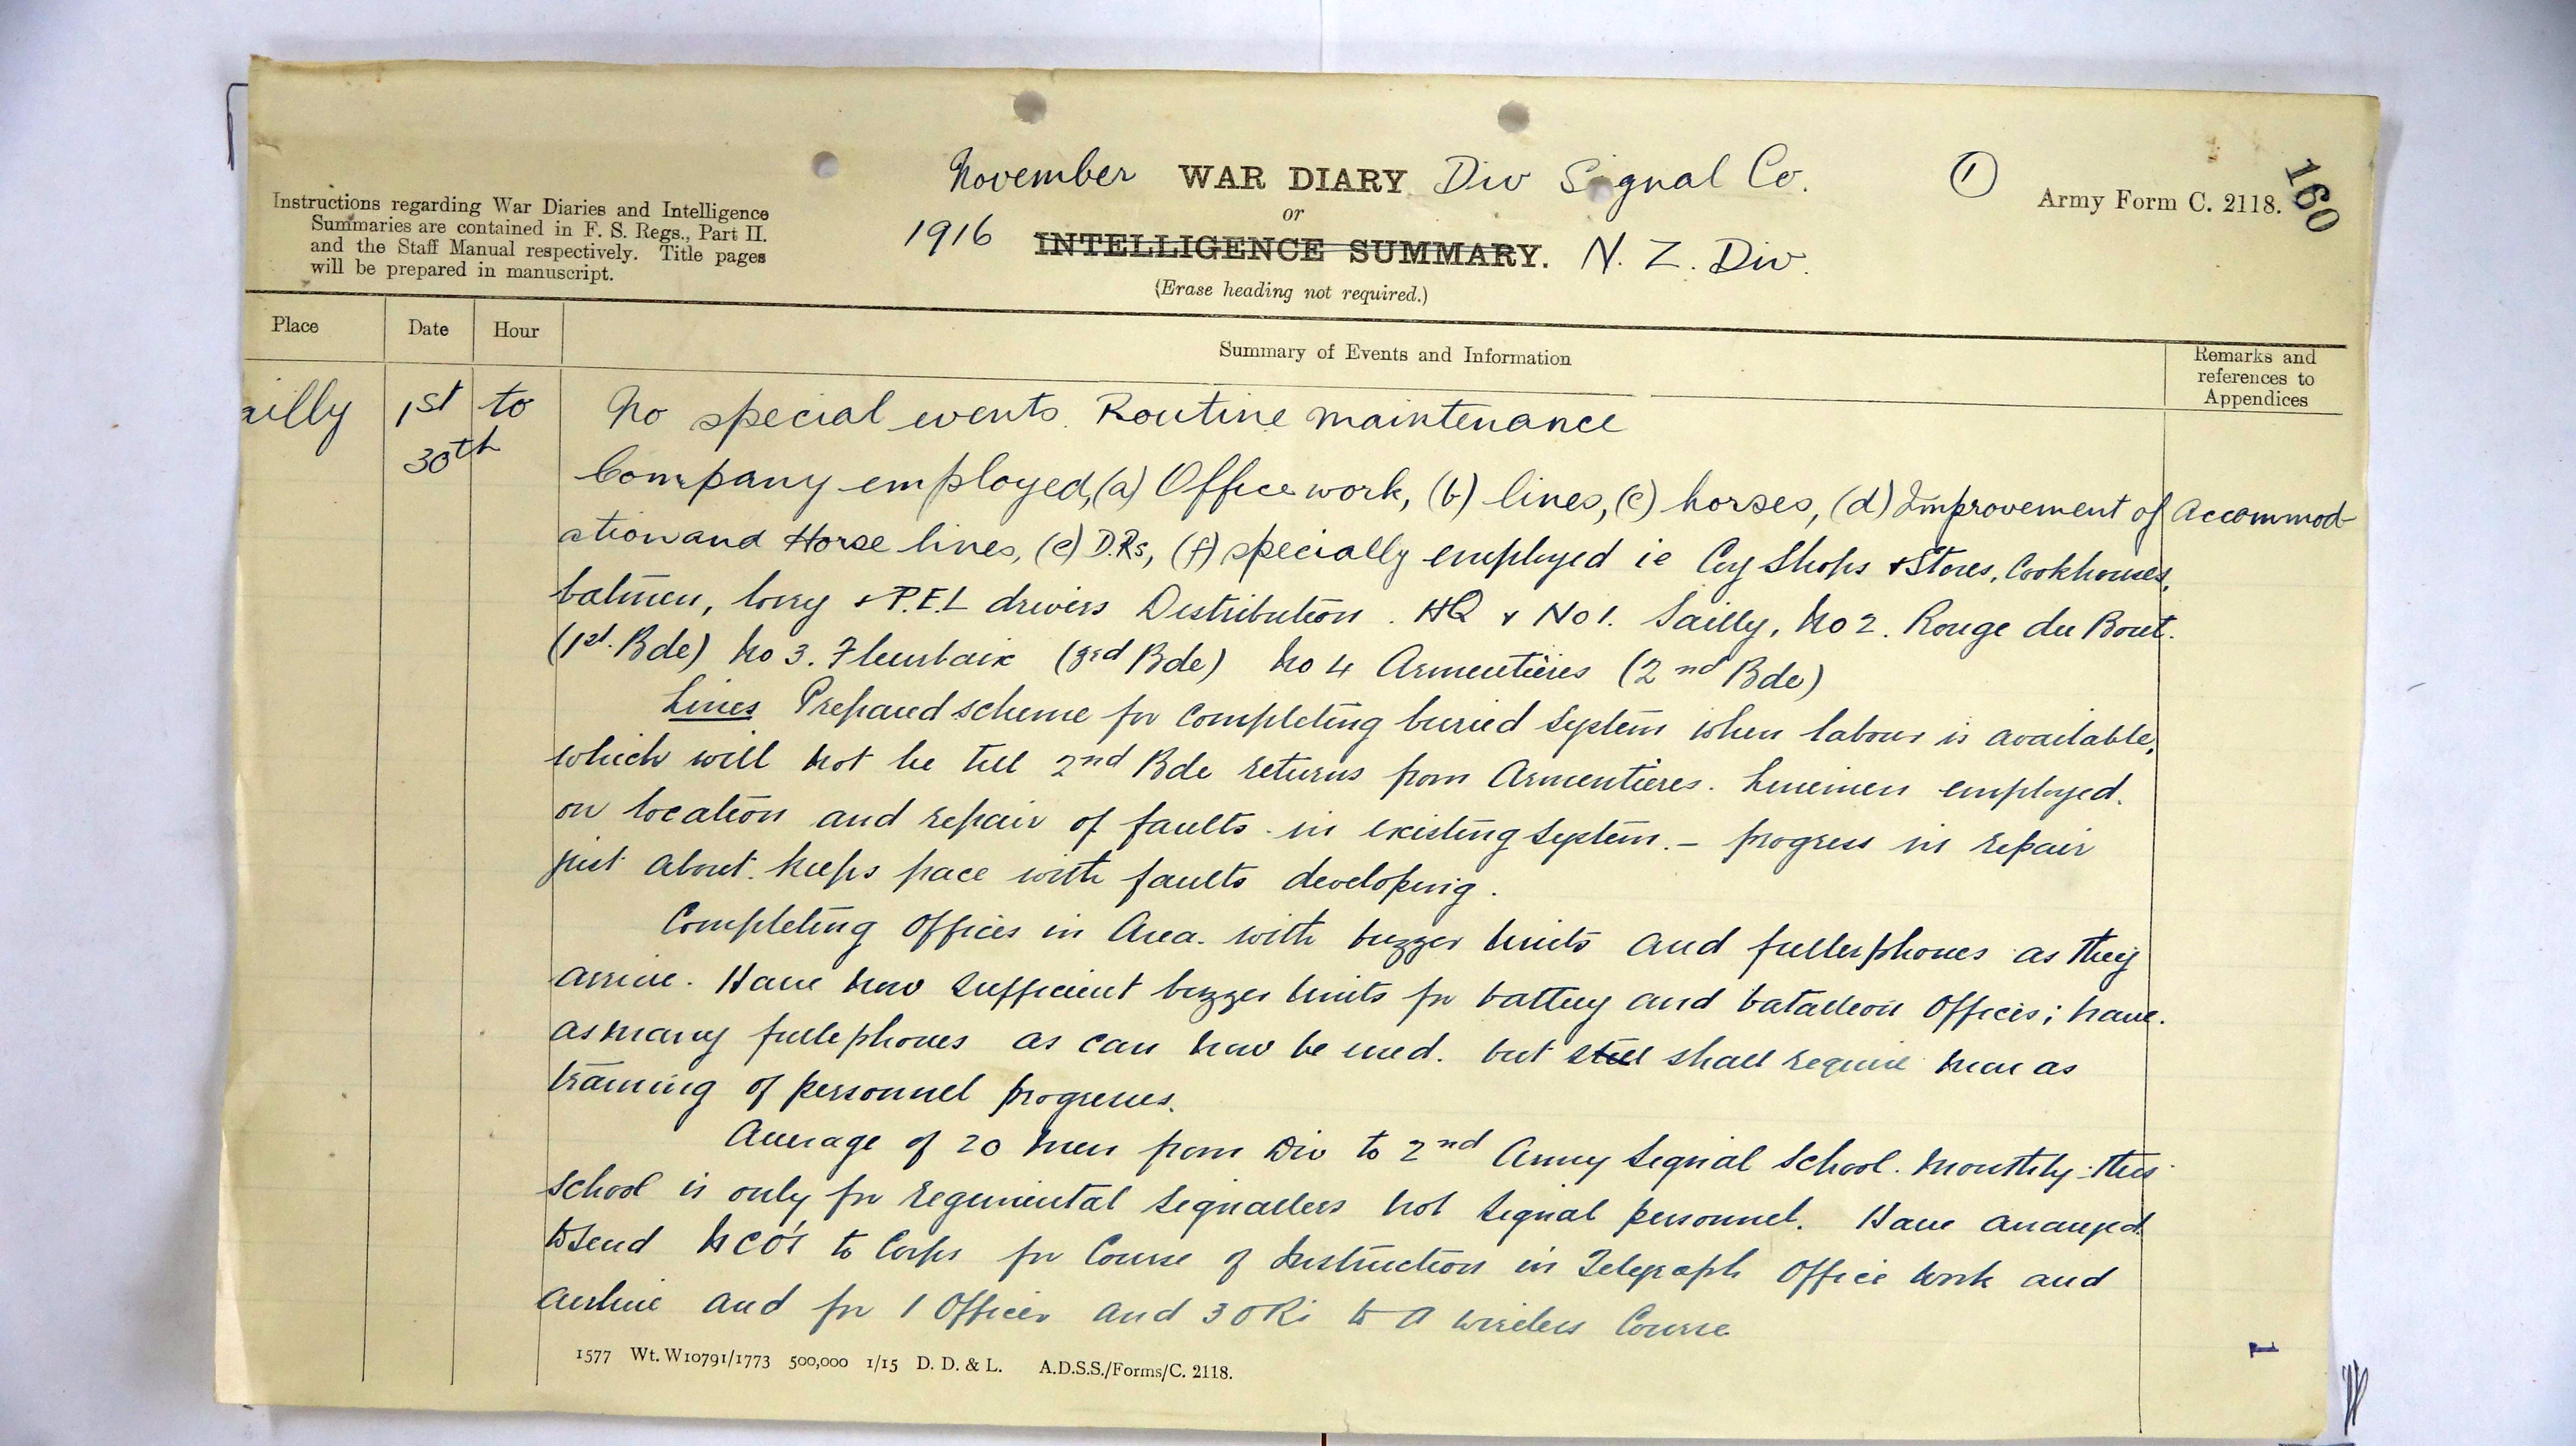 November WAR DIARY Div Signal Co. 1 Army Form C. 2118. 160
or
1916 INTELLIGENCE SUMMARY. N. Z. Div.
(Erase heading not required.)
Instructions regarding War Diaries and Intelligence
Summaries are contained in F. S. Regs., Part II.
and the Staff Manual respectively. Title pages
will be prepared in manuscript.
Place Date Hour Summary of Events and Information Remarks and
references to
Appendices
ailly 1st to No special events. Routine maintenance
30th
Company employed, (a) Office work, (b) lines, (c) horses, (d) Improvement of Accommod-
ation and Horse lines, (e) D.Rs, (f) specially employed ie Coy Shops & Stores, Cookhouses,
batmen, lorry & P.E.L drivers Distribution. HQ & No 1. Sailly, No 2. Rouge du Bout.
(1st. Bde) No 3. Fleurbaix (3rd Bde) No 4 Armentières (2nd Bde)
Lines Prepared scheme for completing buried system when labour is available,
which will not be till 2nd Bde returns from Armentieres. Linemen employed.
on location and repair of faults in existing system. - progress in repair
just about keeps pace with faults developing.
Completing Offices in Area with buzzer units and fullerphones as they
arrive. Have now sufficient buzzer units for battery and batallion Offices; have.
as many fullephones as can now be used. but still shall require more as
training of personnel progresses.
Average of 20 men from Div to 2nd Army Signal School. Monthly. this
School is only for regimental signallers not signal personnel. Have arranged
to send NCO's to Corps for Course of Instruction in Telegraph Office work and
airline and for 1 Officer and 3 ORs to a wireless Course
1577 Wt. W10791/1773 500,000 1/15 D. D. & L. A.D.S.S./Forms/C. 2118.
1